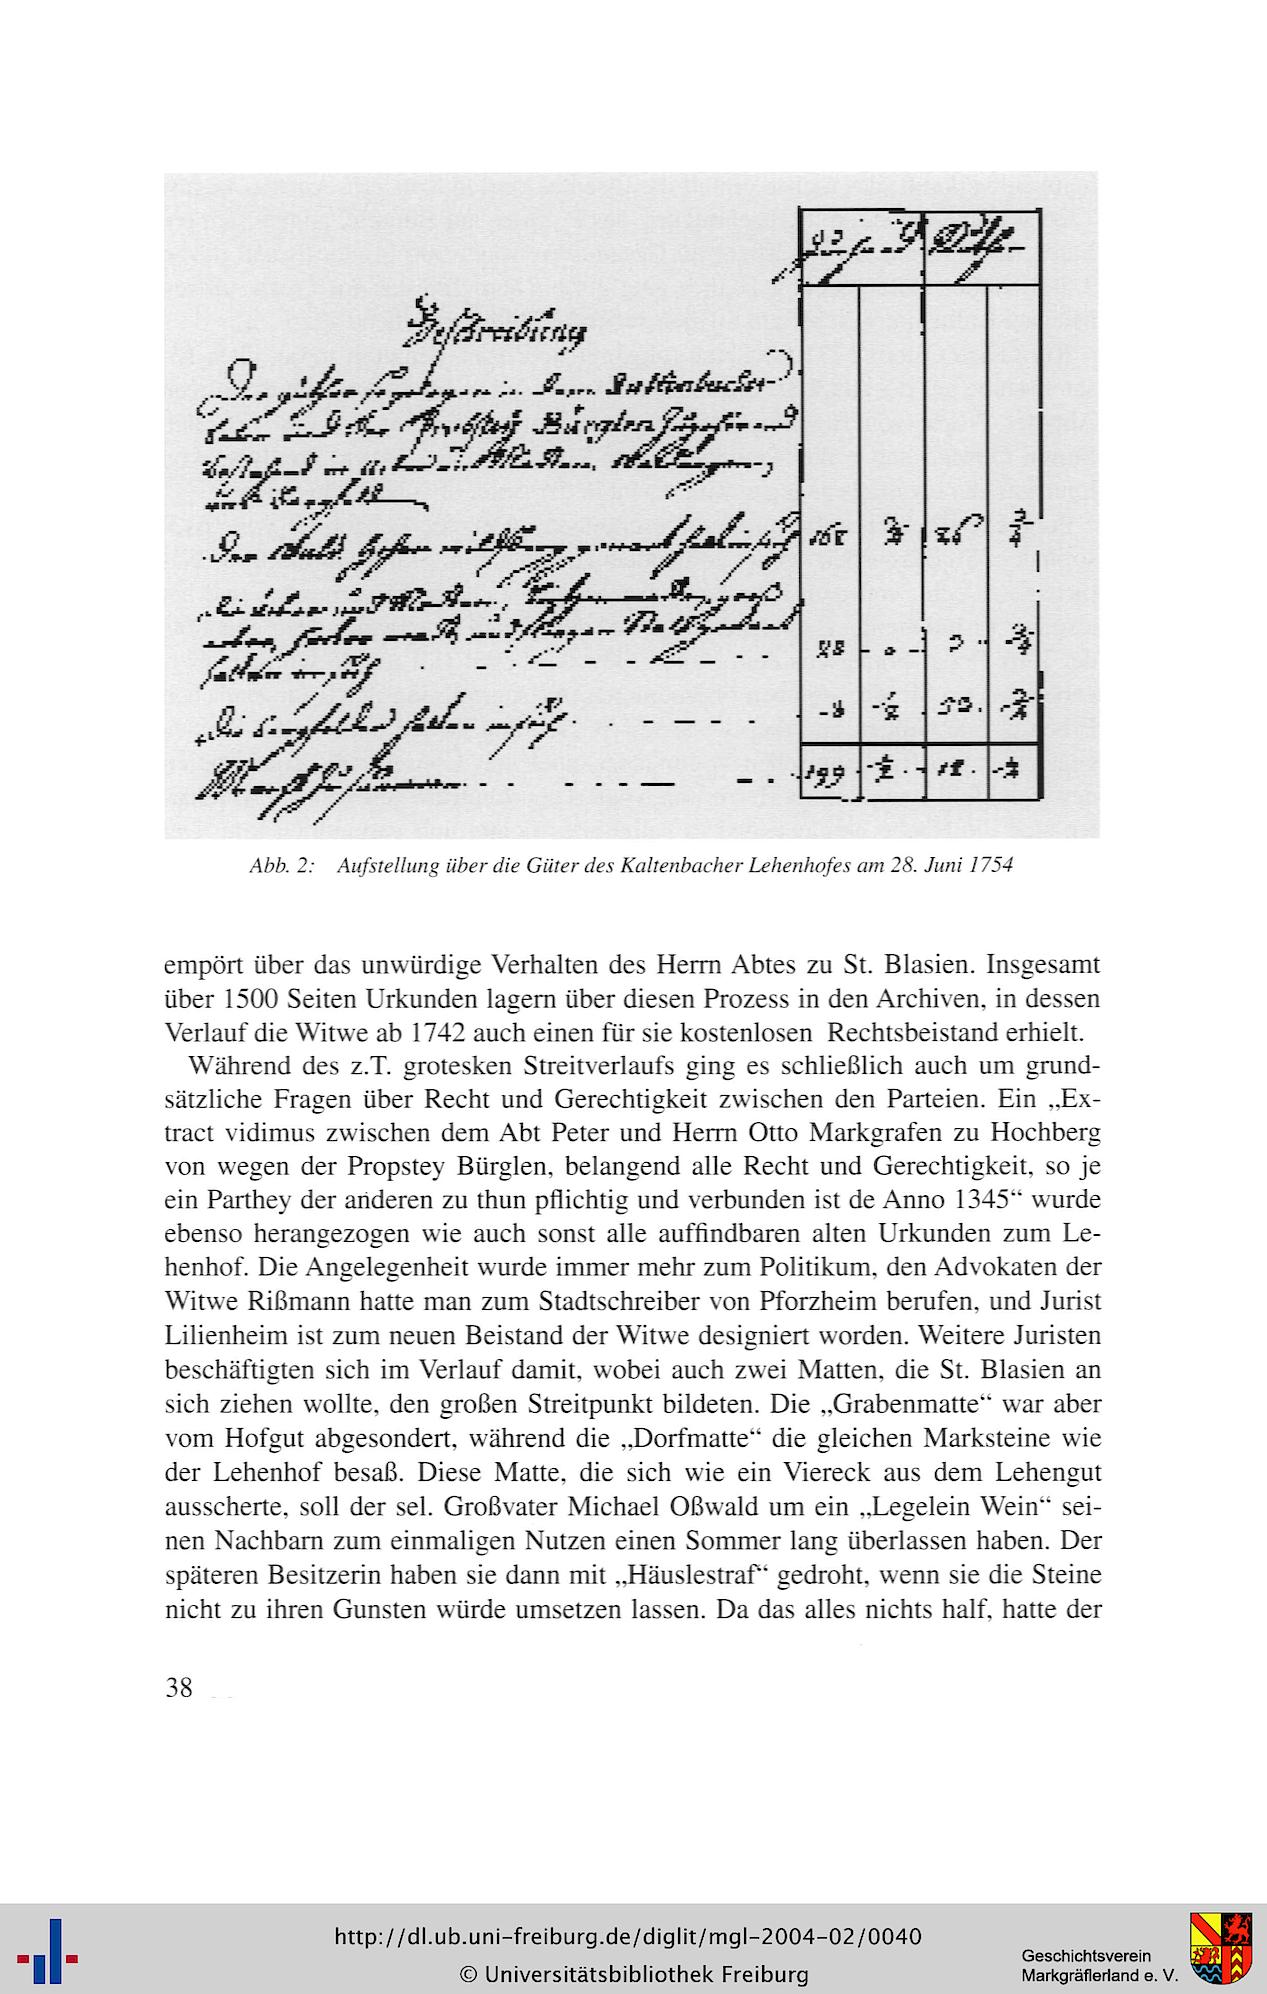 Beschreibung
168 3/4 26 3/4
28 - 0 -
199 - 1/2 -
Abb. 2: Aufstellung über die Güter des Kaltenbacher Lehenhofes am 28. Juni 1754
empört über das unwürdige Verhalten des Herrn Abtes zu St. Blasien. Insgesamt
über 1500 Seiten Urkunden lagern über diesen Prozess in den Archiven, in dessen
Verlauf die Witwe ab 1742 auch einen für sie kostenlosen Rechtsbeistand erhielt.
Während des z.T. grotesken Streitverlaufs ging es schließlich auch um grund-
sätzliche Fragen über Recht und Gerechtigkeit zwischen den Parteien. Ein „Ex-
tract vidimus zwischen dem Abt Peter und Herrn Otto Markgrafen zu Hochberg
von wegen der Propstey Bürglen, belangend alle Recht und Gerechtigkeit, so je
ein Parthey der anderen zu thun pflichtig und verbunden ist de Anno 1345“ wurde
ebenso herangezogen wie auch sonst alle auffindbaren alten Urkunden zum Le-
henhof. Die Angelegenheit wurde immer mehr zum Politikum, den Advokaten der
Witwe Rißmann hatte man zum Stadtschreiber von Pforzheim berufen, und Jurist
Lilienheim ist zum neuen Beistand der Witwe designiert worden. Weitere Juristen
beschäftigten sich im Verlauf damit, wobei auch zwei Matten, die St. Blasien an
sich ziehen wollte, den großen Streitpunkt bildeten. Die „Grabenmatte“ war aber
vom Hofgut abgesondert, während die „Dorfmatte“ die gleichen Marksteine wie
der Lehenhof besaß. Diese Matte, die sich wie ein Viereck aus dem Lehengut
ausscherte, soll der sel. Großvater Michael Oßwald um ein „Legelein Wein“ sei-
nen Nachbarn zum einmaligen Nutzen einen Sommer lang überlassen haben. Der
späteren Besitzerin haben sie dann mit „Häuslestraf“ gedroht, wenn sie die Steine
nicht zu ihren Gunsten würde umsetzen lassen. Da das alles nichts half, hatte der
38
http://dl.ub.uni-freiburg.de/diglit/mgl-2004-02/0040
© Universitätsbibliothek Freiburg
Geschichtsverein
Markgräflerland e. V.